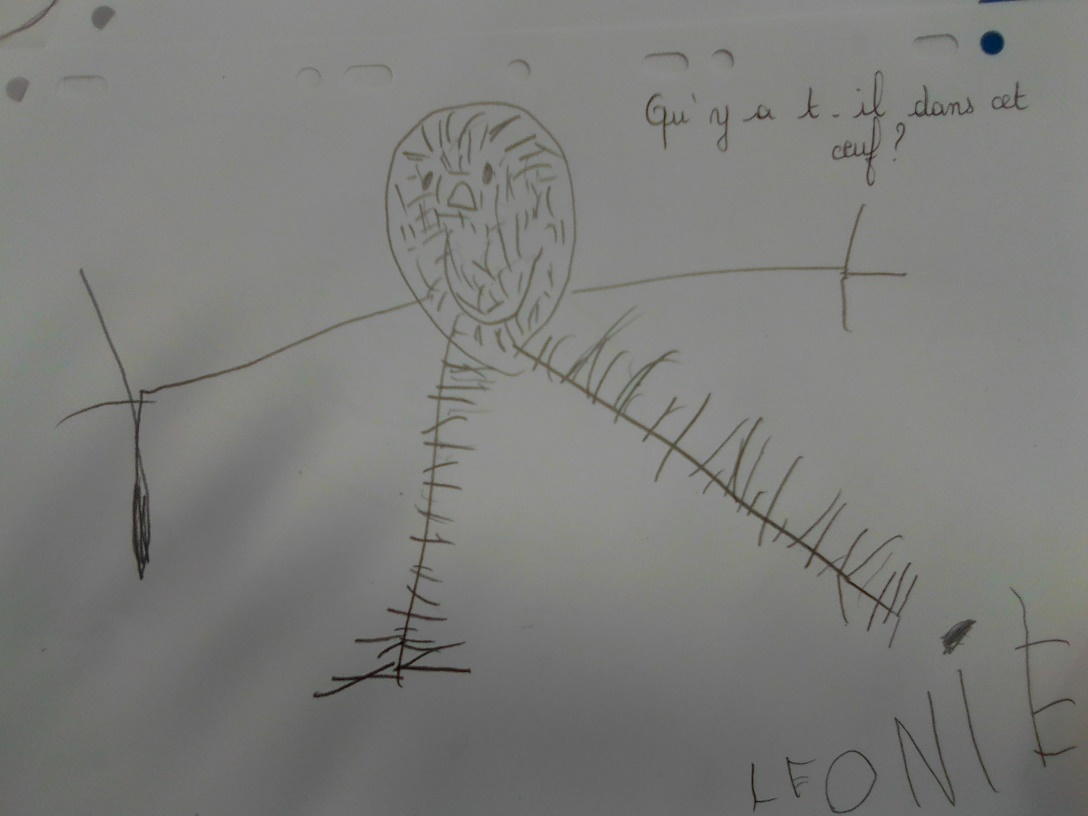 Qu'y a t-il dans cet
œuf ?
LEONIE